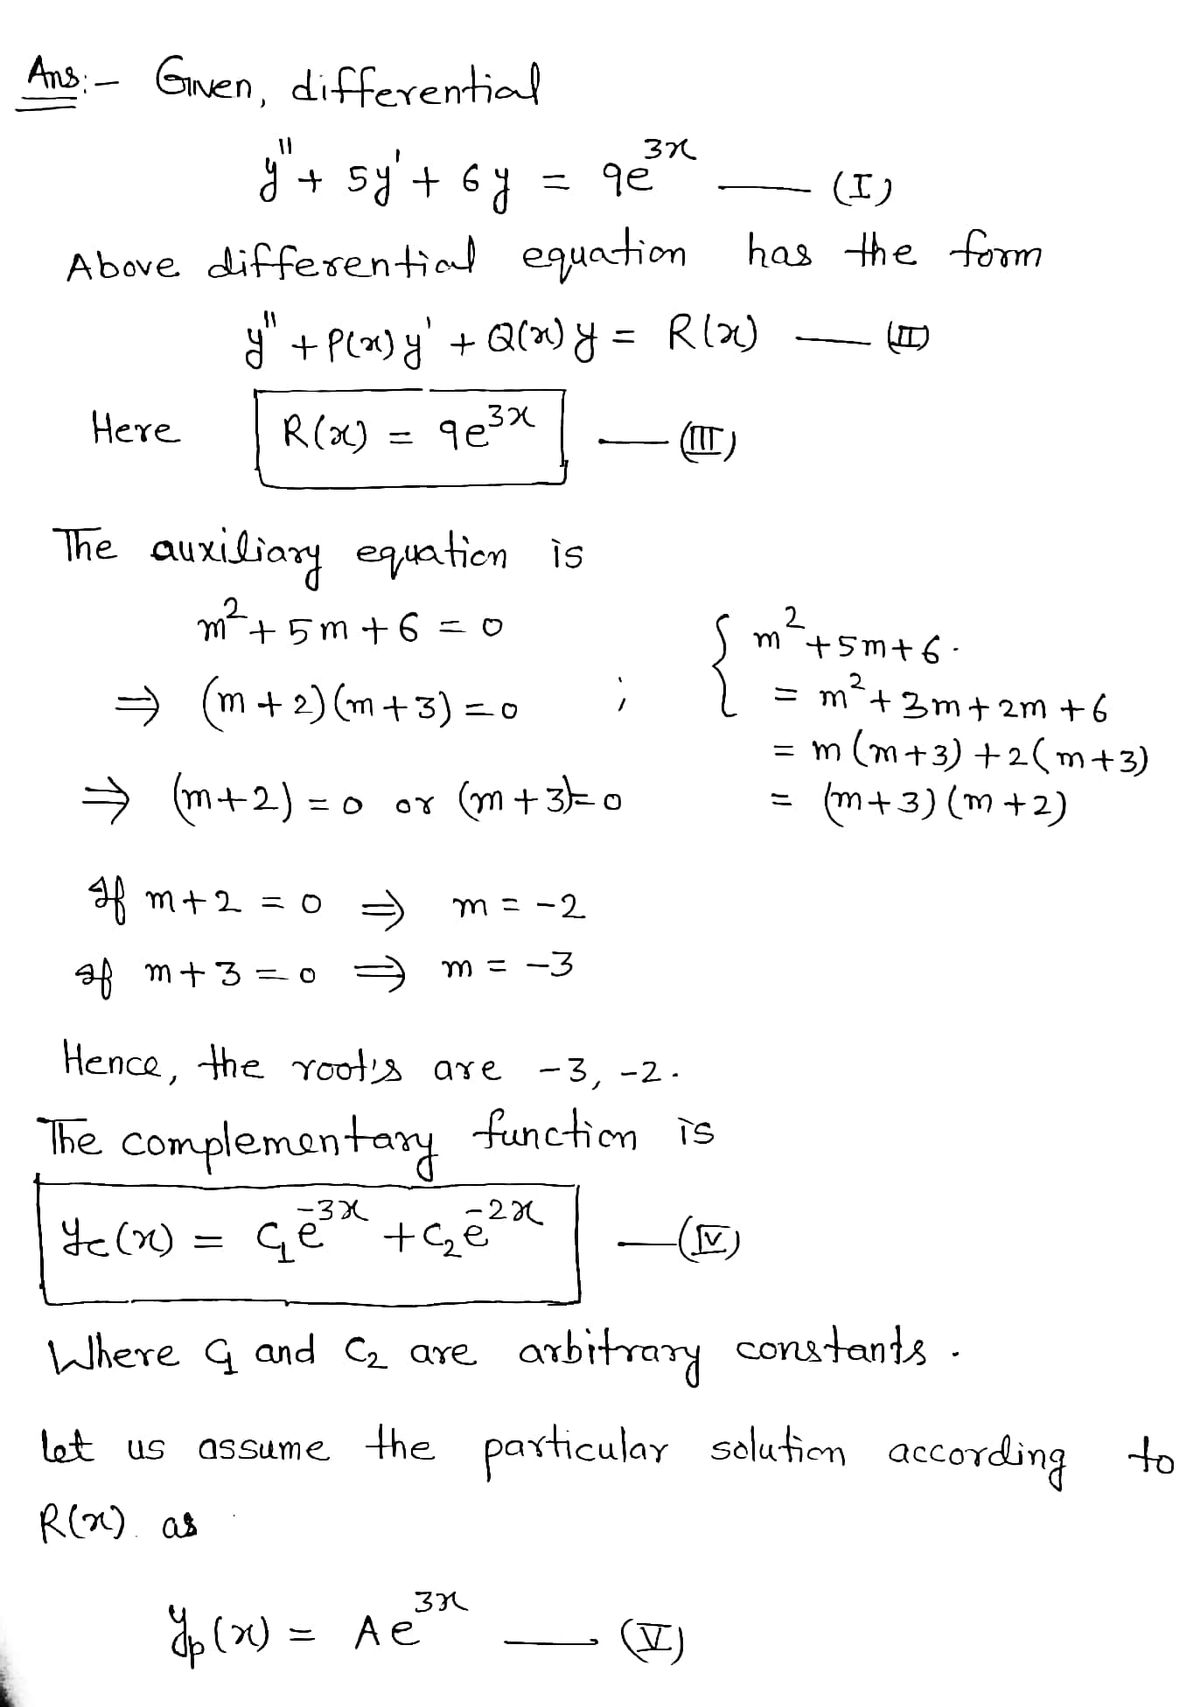 Ans:- Given, differential
y'' + 5y' + 6y = 9e^{3x} —— (I)
Above differential equation has the form
y'' + P(x)y' + Q(x)y = R(x) —— (II)
Here R(x) = 9e^{3x} —— (III)
The auxiliary equation is
m² + 5m + 6 = 0
⇒ (m+2)(m+3) = 0 ;
{ m² + 5m + 6.
= m² + 3m + 2m + 6
= m(m+3) + 2(m+3)
= (m+3)(m+2)
⇒ (m+2) = 0 or (m+3) = 0
If m+2 = 0 ⇒ m = -2
If m+3 = 0 ⇒ m = -3
Hence, the root's are -3, -2.
The complementary function is
y_c(x) = C₁e^{-3x} + C₂e^{-2x} —— (IV)
Where C₁ and C₂ are arbitrary constants.
let us assume the particular solution according to
R(x) as
y_p(x) = Ae^{3x} —— (V)